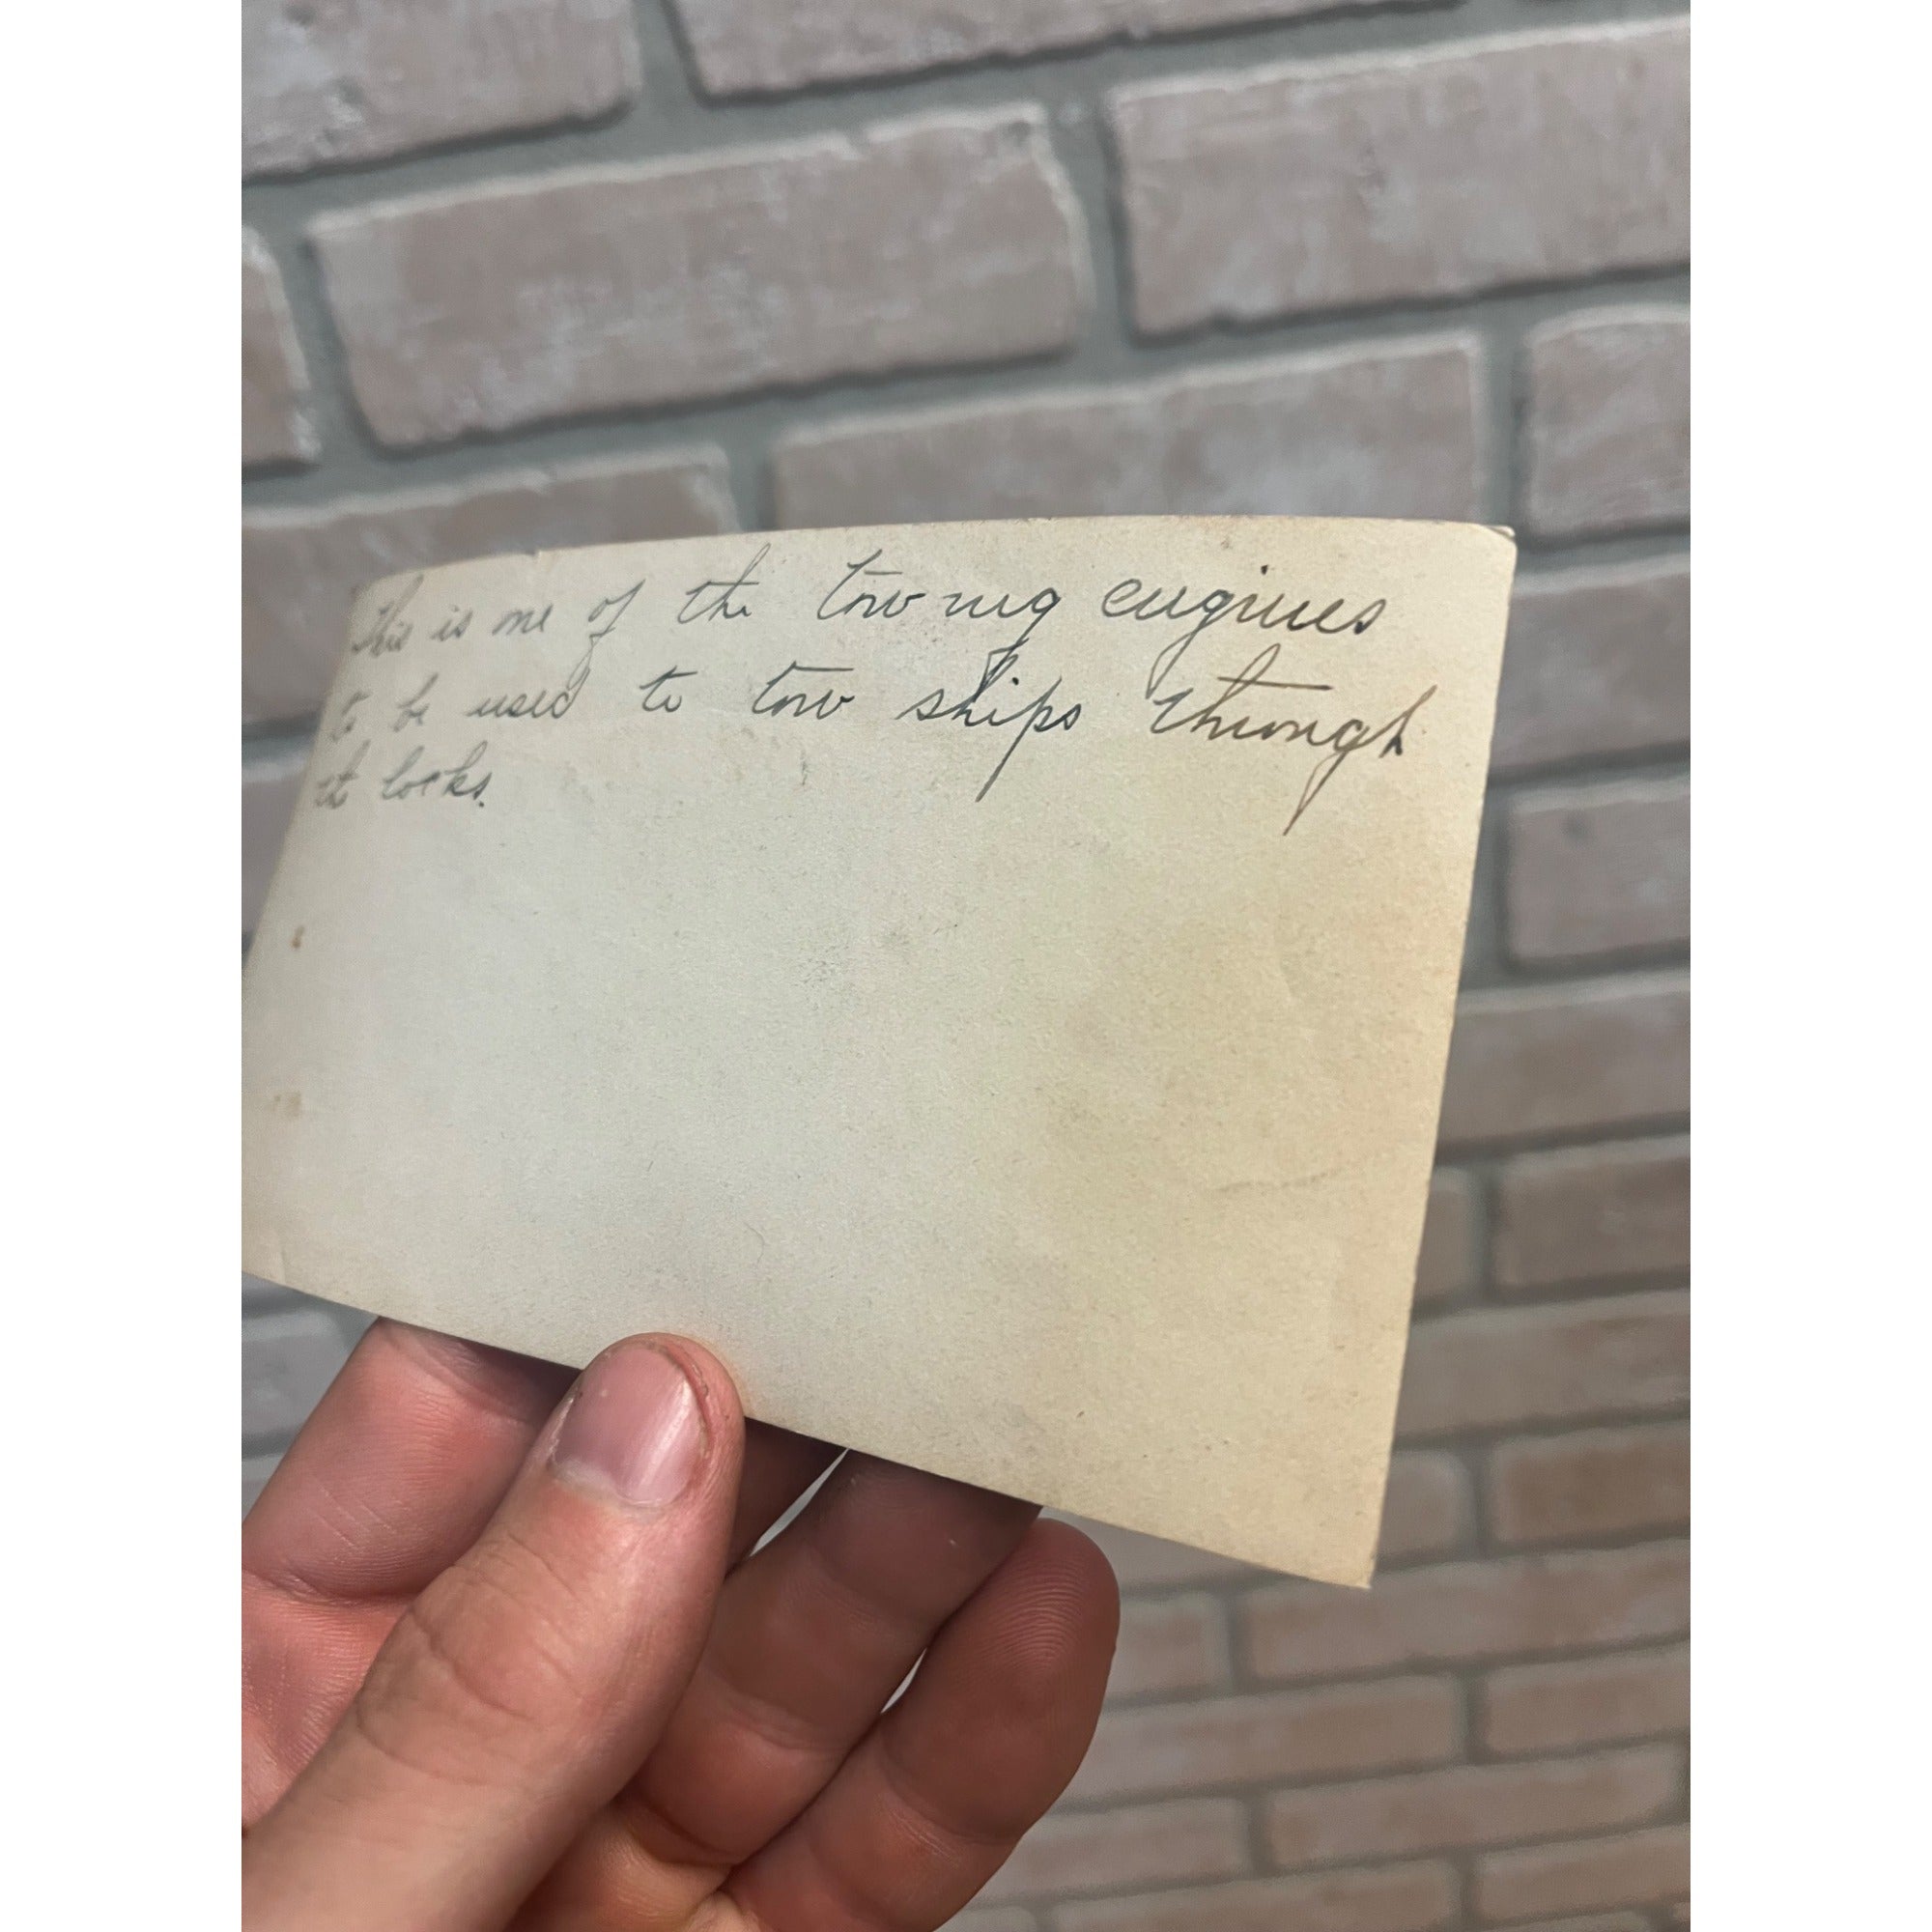 This is one of the towing engines
to be used to tow ships through
the locks.